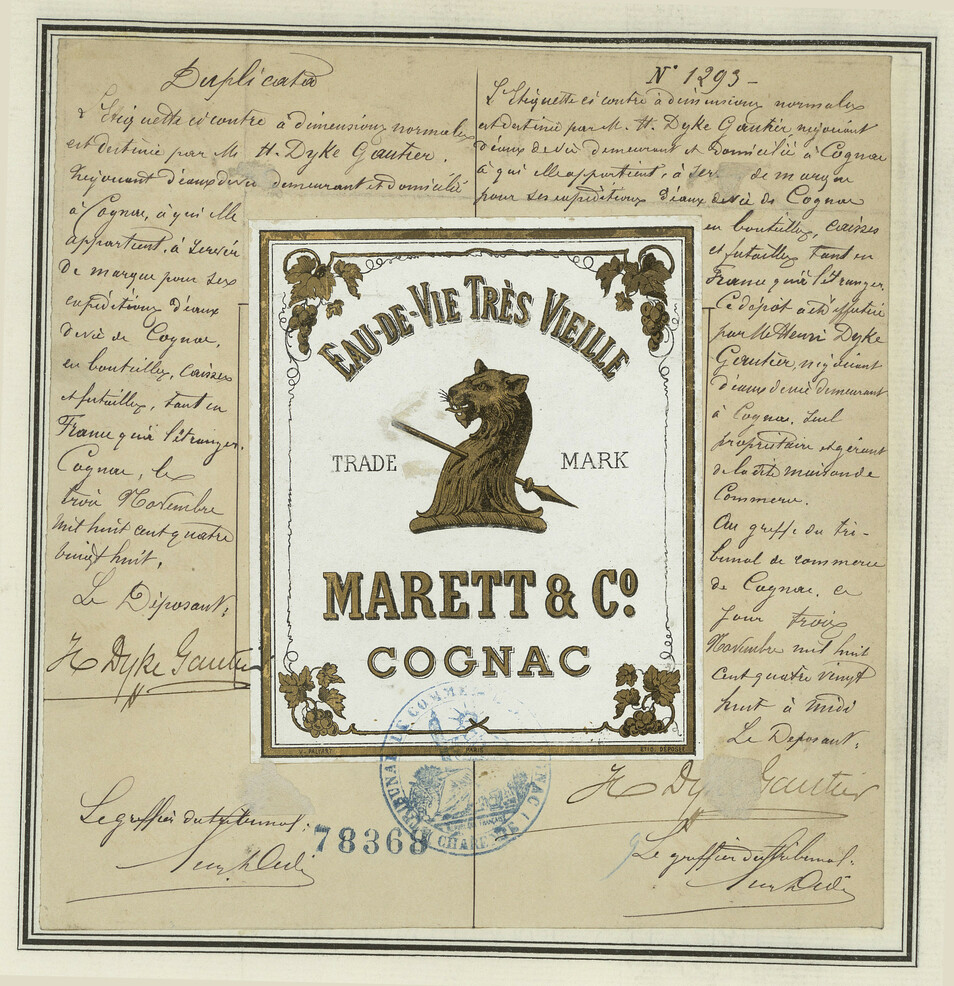 Duplicata
L'Etiquette ci contre à dimensions normales
est destinée par M. H. Dyke Gautier,
négociant d'eaux de vie demeurant et domicilié
à Cognac, à qui elle
appartient, à servir
de marque pour ses
expéditions d'eaux
de vie de Cognac,
en bouteilles, caisses
et futailles, tant en
France qu'à l'étranger.
Cognac, le
trois Novembre
mil huit cent quatre
vingt huit.
Le Déposant:
H Dyke Gautier
Le greffier du tribunal:
N° 1293 -
L'Etiquette ci contre à dimensions normales
est destinée par M. H. Dyke Gautier, négociant
d'eaux de vie demeurant et domicilié à Cognac
à qui elle appartient, à servir de marque
pour ses expéditions d'eaux de vie de Cognac
en bouteilles, caisses
et futailles tant en
France qu'à l'étranger.
Ce dépôt a été effectué
par M. Henri Dyke
Gautier, négociant
d'eaux de vie demeurant
à Cognac, seul
propriétaire et gérant
de la dite maison de
Commerce.
Au greffe du tri-
bunal de commerce
de Cognac, ce
jour trois
Novembre mil huit
cent quatre vingt
huit à midi
Le Déposant:
H Dyke Gautier
Le greffier du tribunal:
EAU-DE-VIE TRÈS VIEILLE
TRADE MARK
MARETT & Cº
COGNAC
PARIS
ETIQ. DÉPOSÉE
78368